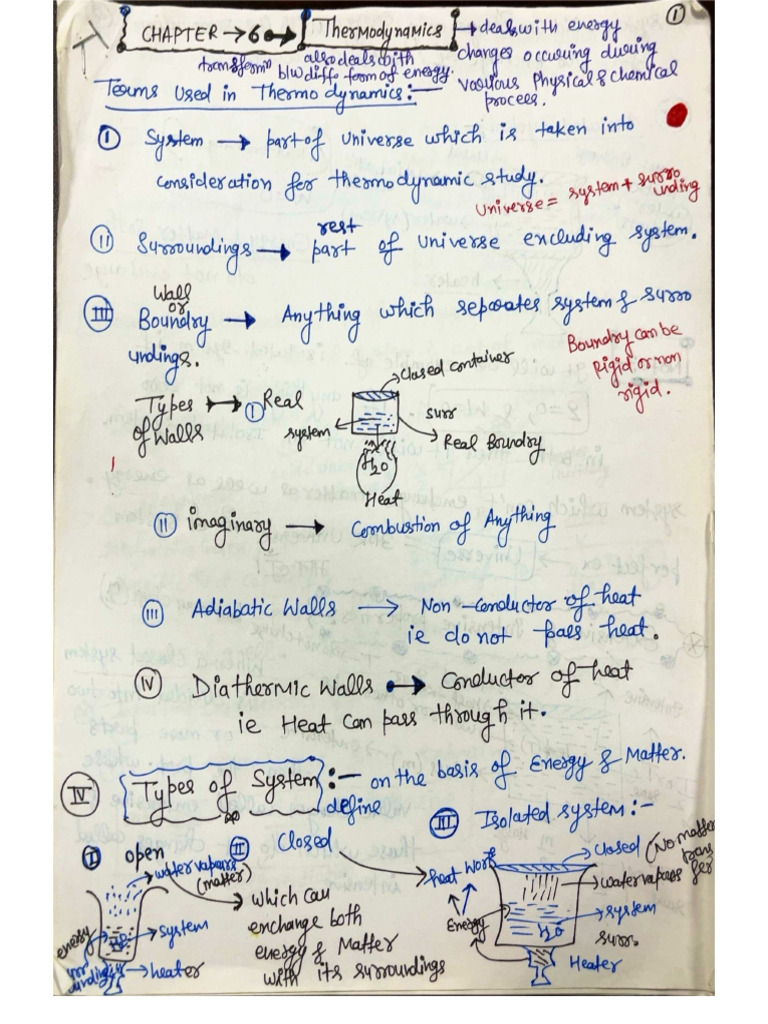 ①
CHAPTER → 6 → Thermodynamics → deals with energy
changes occuring during
various Physical & chemical
process.
also deals with
transform b/w diff. form of energy.
Terms Used in Thermodynamics:-
① System → part of Universe which is taken into
consideration for thermodynamic study.
Universe = system + surro
unding
② Surroundings → rest part of Universe excluding system.
Wall
or
③ Boundry → Anything which seperates system & surro
undings.
Boundry can be
Rigid or non
rigid.
Types
of Walls
① Real
closed container
surr
system
Real Boundry
H2O
Heat
② imaginary → Combustion of Anything
③ Adiabatic Walls → Non-conductor of heat
ie do not pass heat.
④ Diathermic Walls → Conductor of heat
ie Heat Can pass through it.
④ Types of System:- on the basis of Energy & Matter.
define
① open
water vapars
(matter)
energy
system
heater
H2O
② Closed
which can
exchange both
energy & Matter
with its surroundings
③ Isolated system:-
closed (No matter
trans
fer
heat Work
water vapars
Energy
system
H2O
surr.
Heater